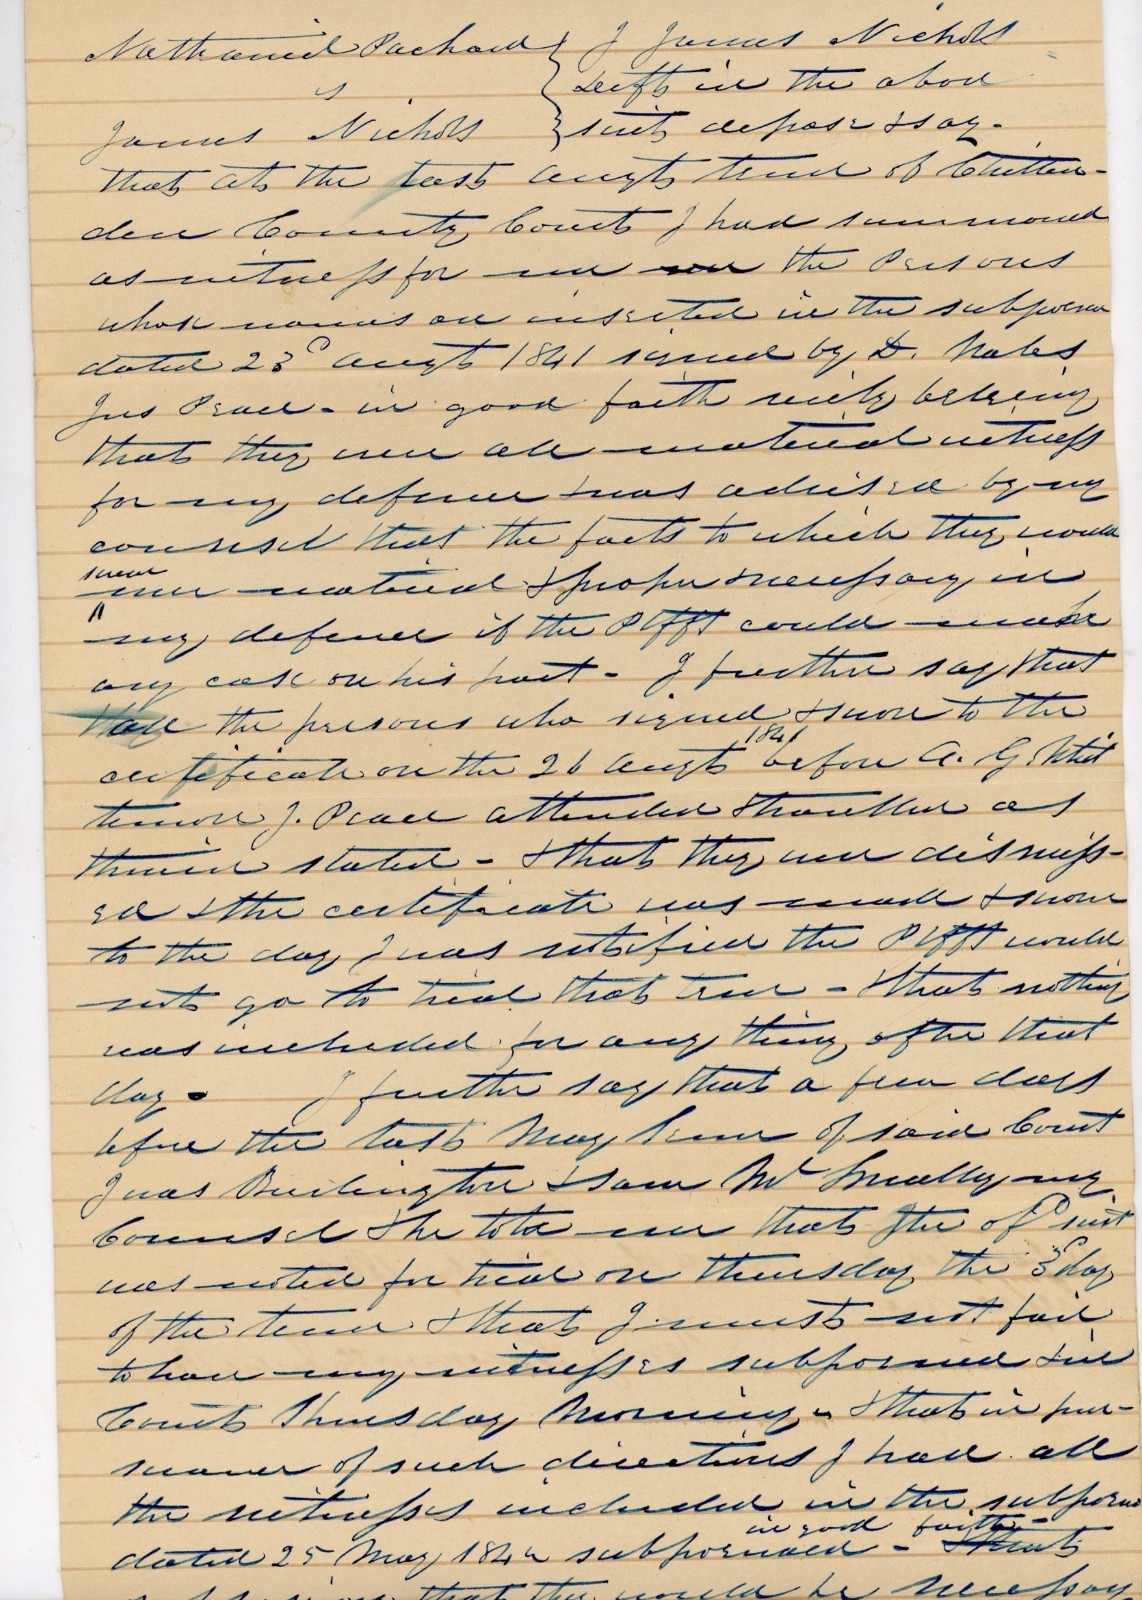 Nathaniel Packard } I James Nichols
vs } Deft in the above
James Nichols } suit depose & say -
that at the last Augt term of Chitten-
den County Court I had summoned
as witness for me the Persons
whose names are inserted in the subpoena
dated 23d Augt 1841 signed by D. Nabes
Jus Peace - in good faith believing
that they were all material witness
for my defence & was advised by my
counsel that the facts to which they would
swear
were material & proper & necessary in
my defence if the Plfft could make
any case on his part - I further say that
the persons who signed & swore to the
1841
certificate on the 26 Augt before A. G. Whit
temore J. Peace attended & travelled as
therein stated - & that they were dismiss-
ed & the certificate was made & sworn
to the day I was notified the Plfft would
not go to trial that term - & that nothing
was included for any thing after that
day - I further say that a few days
before the last May Term of said Court
I was Burlington & saw Mr Smalley my
Counsel & he told me that the afd suit
was noted for trial on Thursday the 3d day
of the term & that I must not fail
to have my witnesses subpoened & in
Court Thursday Morning - & that in pur-
suance of such directions I had all
the witnesses included in the subpoena
in good faith -
dated 25 May 1842 subpoenaed - & that
that they would be necessary